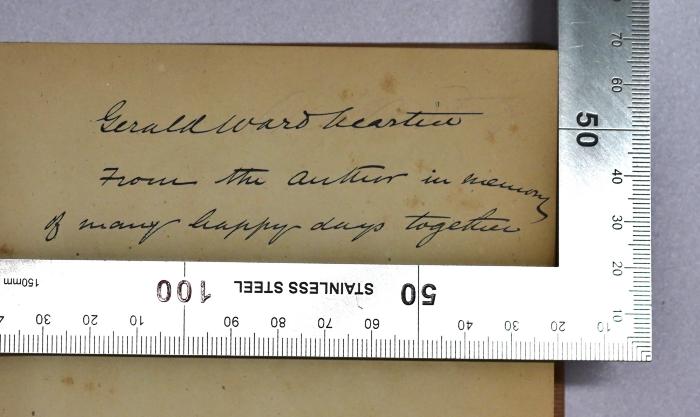 Gerald Ward
From the author in memory
of many happy days together
70
60
50
40
30
20
10
STAINLESS STEEL
150mm
100
50
30 20 10 90 80 70 60 40 30 20 10